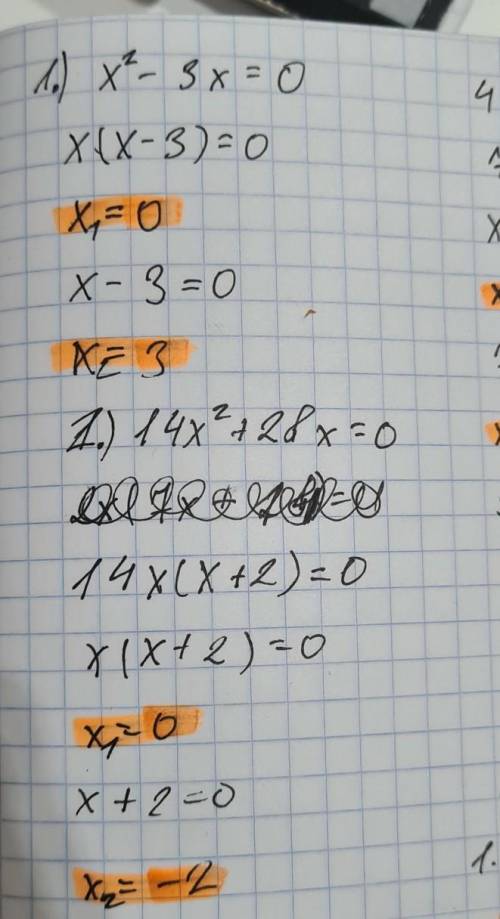 1.) x² - 3x = 0
x·(x - 3) = 0
x₁ = 0
x - 3 = 0
x = 3
1.) 14x² + 28x = 0
14x(x + 2) = 0
x(x + 2) = 0
x₁ = 0
x + 2 = 0
x₂ = -2
4
x
1.